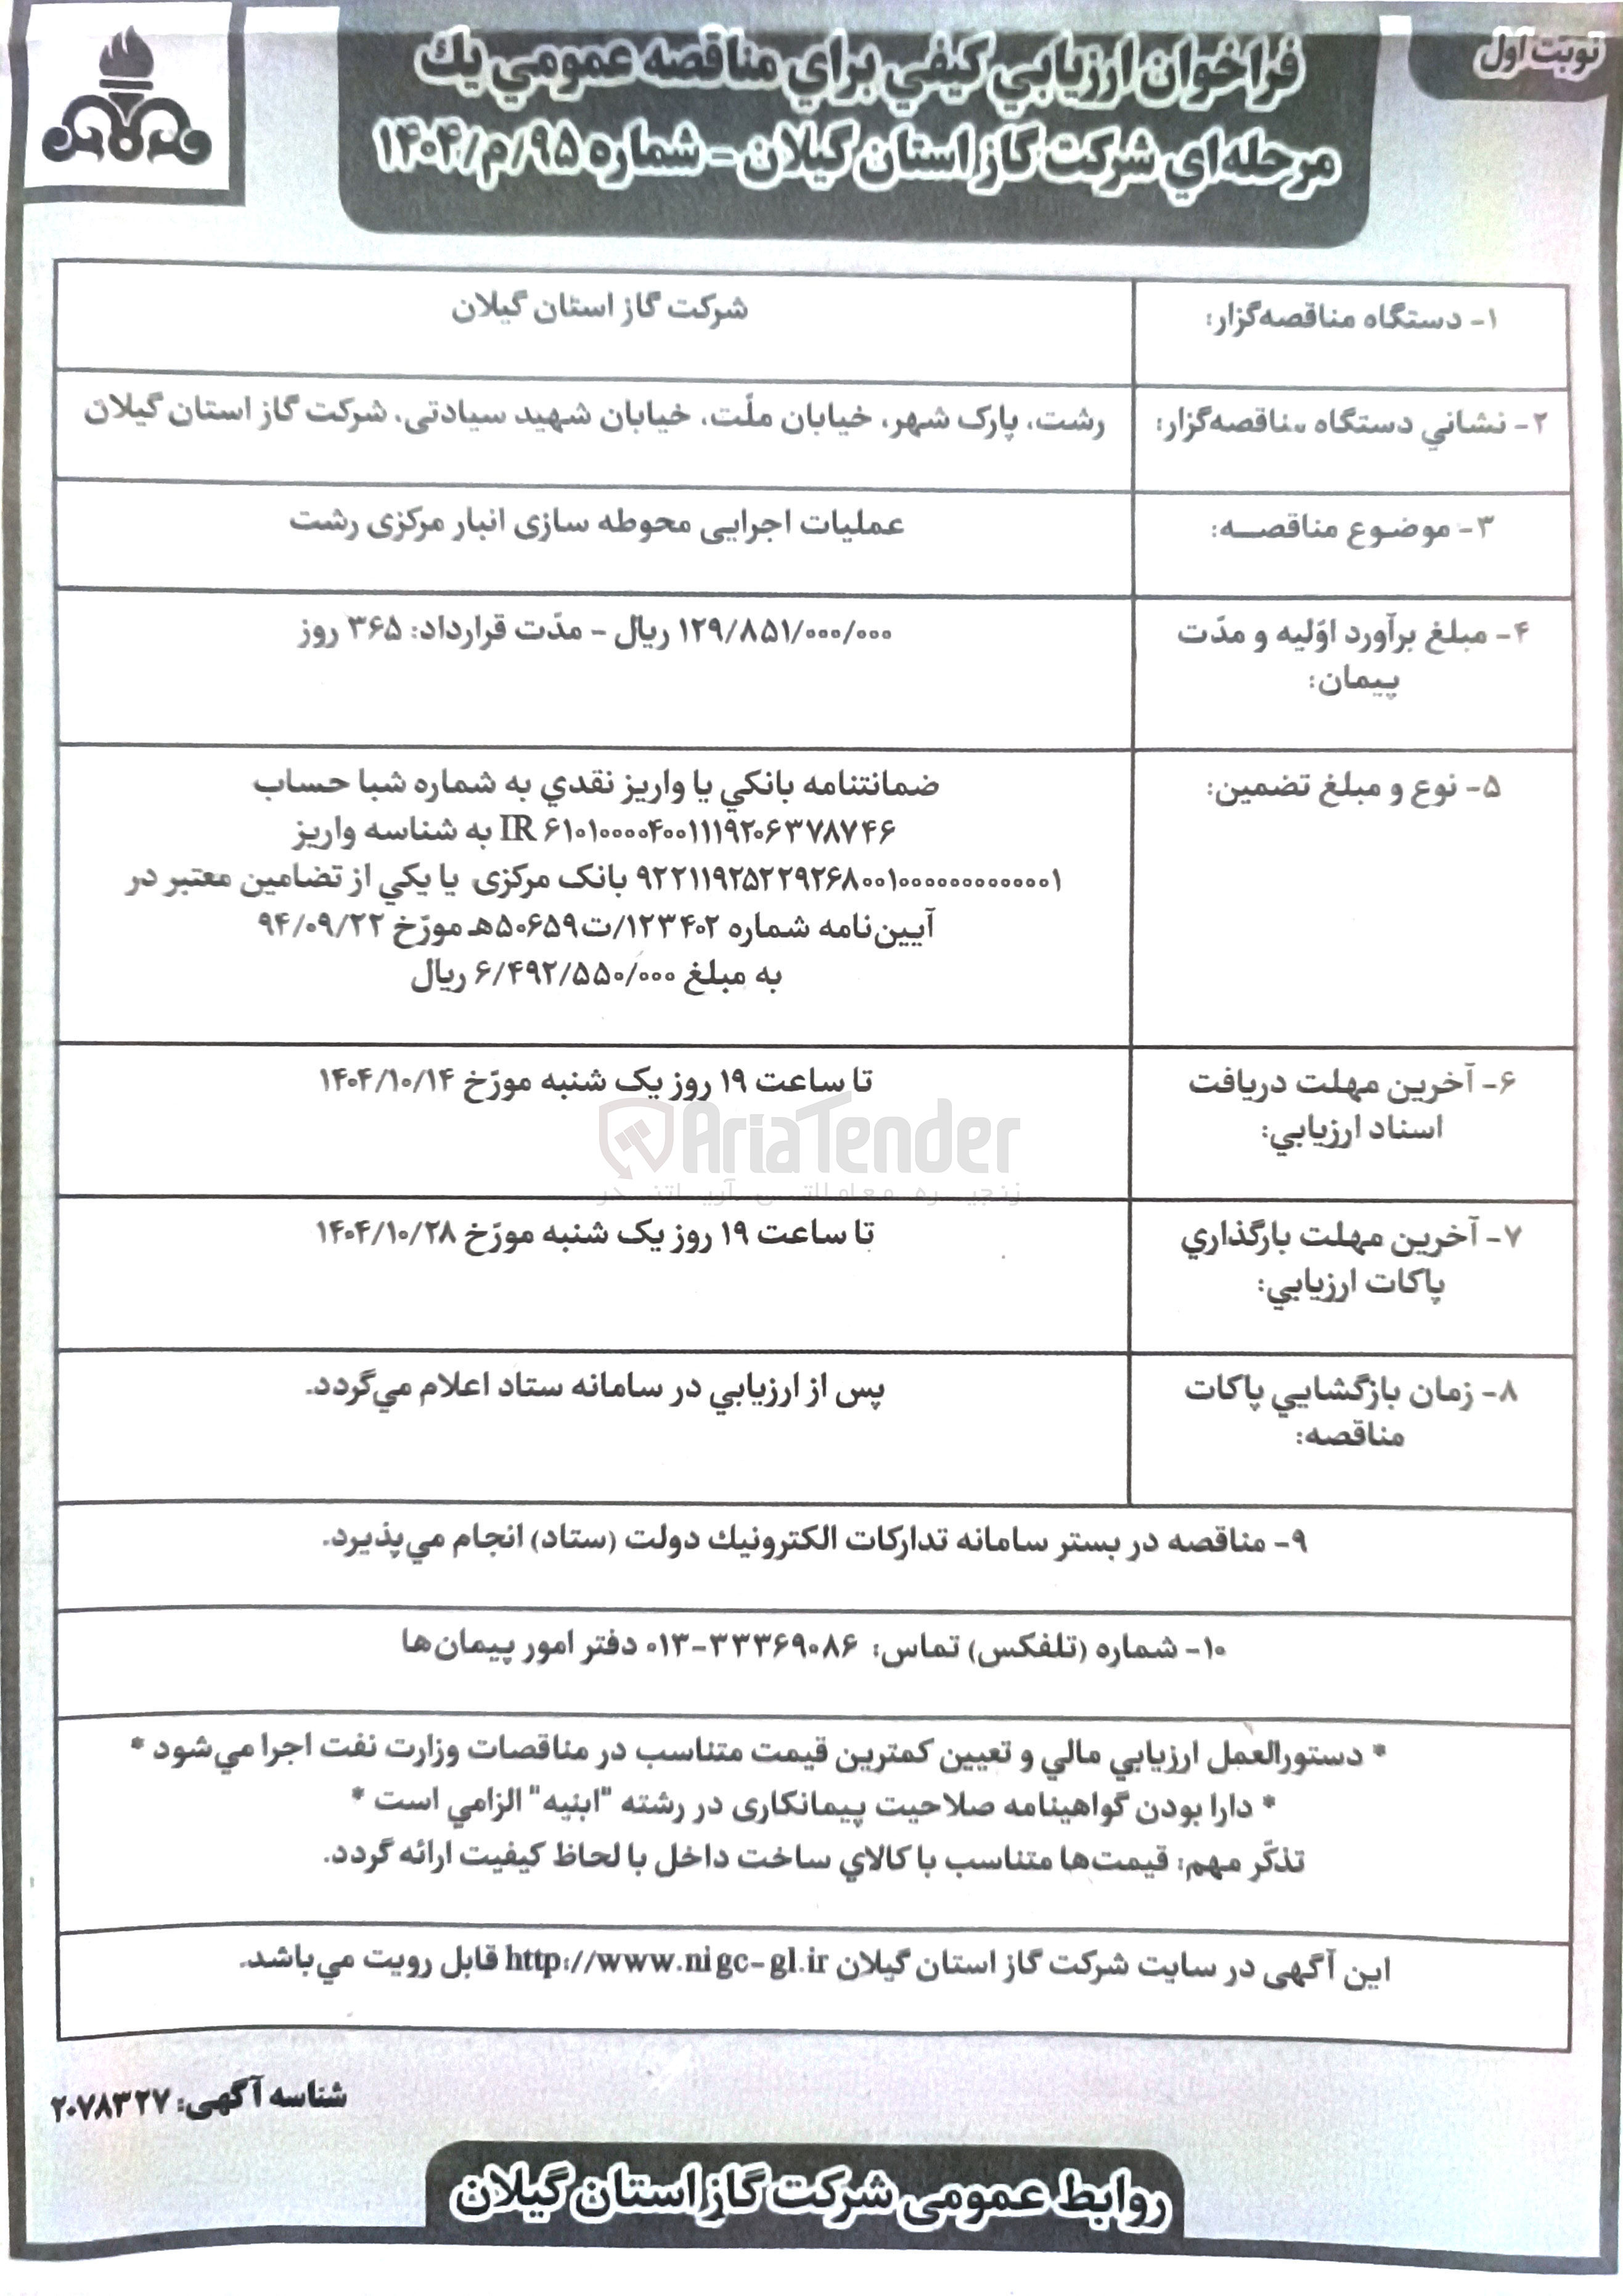 نوبت اول
فراخوان ارزيابي كيفي براي مناقصه عمومي يك
مرحله‌اي شركت گاز استان گيلان - شماره ۹۵/م/۱۴۰۴
۱- دستگاه مناقصه‌گزار:
شرکت گاز استان گیلان
۲- نشاني دستگاه مناقصه‌گزار:
رشت، پارک شهر، خیابان ملّت، خیابان شهید سیادتی، شرکت گاز استان گیلان
۳- موضوع مناقصـــه:
عملیات اجرایی محوطه سازی انبار مرکزی رشت
۴- مبلغ برآورد اوّلیه و مدّت
پیمان:
۱۲۹/۸۵۱/۰۰۰/۰۰۰ ریال - مدّت قرارداد: ۳۶۵ روز
۵- نوع و مبلغ تضمین:
ضمانتنامه بانكي يا واريز نقدي به شماره شبا حساب
IR ۶۱۰۱۰۰۰۰۴۰۰۱۱۱۹۲۰۶۳۷۸۷۴۶ به شناسه واریز
۹۲۲۱۱۹۲۵۲۲۹۲۶۸۰۰۱۰۰۰۰۰۰۰۰۰۰۰۰۱ بانک مرکزی یا یکي از تضامین معتبر در
آیین‌نامه شماره ۱۲۳۴۰۲/ت۵۰۶۵۹هـ مورّخ ۹۴/۰۹/۲۲
به مبلغ ۶/۴۹۲/۵۵۰/۰۰۰ ریال
۶- آخرین مهلت دریافت
اسناد ارزیابي:
تا ساعت ۱۹ روز یک شنبه مورّخ ۱۴۰۴/۱۰/۱۴
AriaTender
زنجیره معاملاتی آریاتندر
۷- آخرین مهلت بارگذاري
پاکات ارزیابي:
تا ساعت ۱۹ روز یک شنبه مورّخ ۱۴۰۴/۱۰/۲۸
۸- زمان بازگشایي پاکات
مناقصه:
پس از ارزیابي در سامانه ستاد اعلام مي‌گردد.
۹- مناقصه در بستر سامانه تدارکات الکترونیك دولت (ستاد) انجام مي‌پذیرد.
۱۰- شماره (تلفکس) تماس: ۳۳۳۶۹۰۸۶-۰۱۳ دفتر امور پیمان‌ها
* دستورالعمل ارزیابي مالي و تعیین کمترین قیمت متناسب در مناقصات وزارت نفت اجرا مي‌شود *
* دارا بودن گواهینامه صلاحیت پیمانکاری در رشته "ابنیه" الزامي است *
تذکّر مهم: قیمت‌ها متناسب با کالاي ساخت داخل با لحاظ کیفیت ارائه گردد.
این آگهی در سایت شرکت گاز استان گیلان http://www.nigc-gl.ir قابل رویت مي‌باشد.
شناسه آگهی: ۲۰۷۸۳۲۷
روابط عمومی شرکت گاز استان گیلان